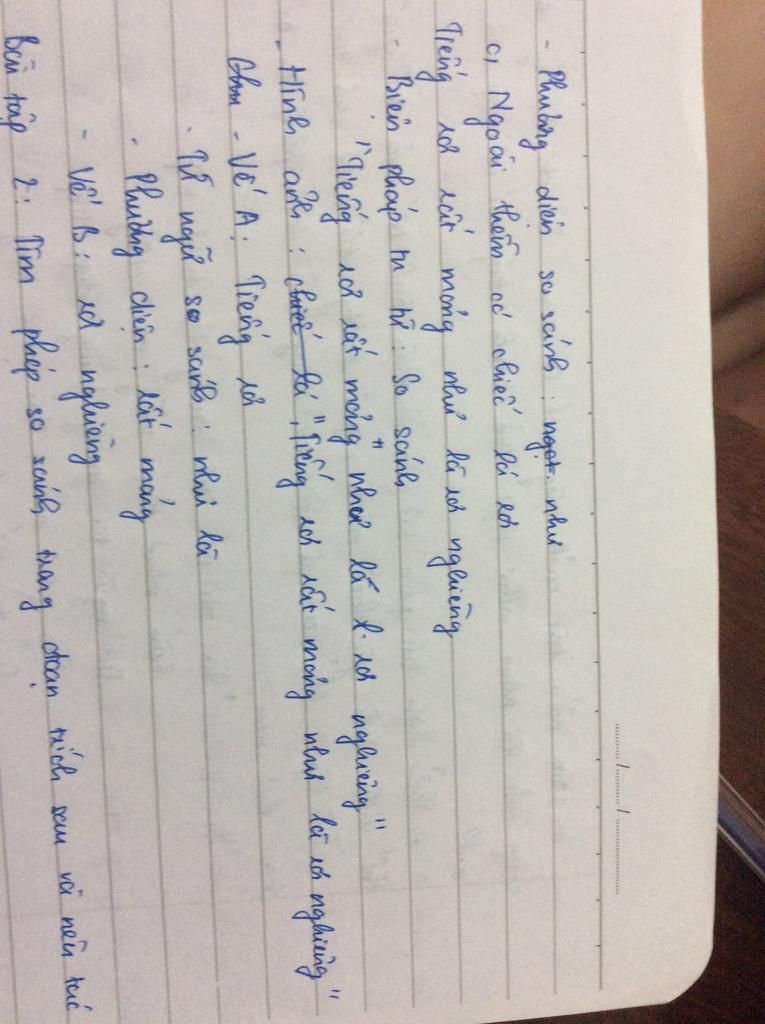 - Phương diện so sánh : ngọt. như
c, Ngoài thềm có chiếc lá rơi
Tiếng rơi rất mỏng như là rơi nghiêng
- Biện pháp tu từ : So sánh
"Tiếng rơi rất mỏng" như là rơi nghiêng"
- Hình ảnh : chiếc lá "Tiếng rơi rất mỏng như là rơi nghiêng"
- Vế A : Tiếng rơi
- Từ ngữ so sánh : như là
- Phương diện : rất mỏng
- Vế B : rơi nghiêng
Bài tập 2 : Tìm phép so sánh trong đoạn trích sau và nêu tác